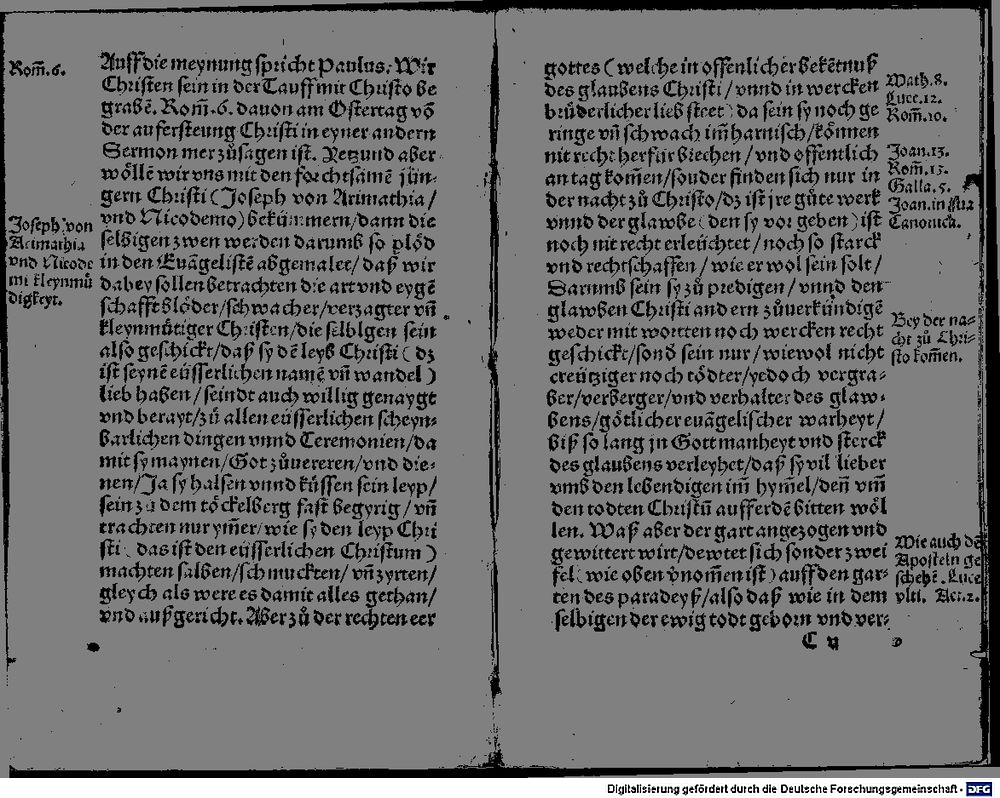 Rom̃.6.
Auff die meynung spricht Paulus. Wir
Christen sein in der Tauff mit Christo be
grabẽ. Rom̃.6. dauon am Ostertag võ
der aufersteung Christi in eyner andern
Sermon mer zůsagen ist. Yetzund aber
wöllẽ wir vns mit den forchtsamẽ jün-
gern Christi (Joseph von Arimathia/
vnd Nicodemo) bekümmern/dann die
Joseph von
Arimathia
vnd Nicode
mi kleynmů
digkeyt.
selbigen zwen werden darumb so plöd
in den Euãgelistẽ abgemalet/daß wir
dabey sollen betrachten die art vnd eygẽ
schafft blöder/schwacher/verzagter vñ
kleynmütiger Christen/die selbigen sein
also geschickt/daß sy dẽ leyb Christi (dz
ist seynẽ eüsserlichen namẽ vñ wandel)
lieb haben/seindt auch willig genaygt
vnd berayt/zů allen eüsserlichen scheyn-
barlichen dingen vnnd Ceremonien/da
mit sy maynen/Got zůuereren/vnd die-
nen/Ja sy halsen vnnd küssen sein leyp/
sein zů dem töckelberg fast begyrig/vñ
trachten nur ym̃er/wie sy den leyp Chri
sti (das ist den eüsserlichen Christum)
machten salben/schmuckten/vñ zyrten/
gleych als were es damit alles gethan/
vnd außgericht. Aber zů der rechten eer
gottes (welche in offenlicher bekẽtnuß
des glaubens Christi/vnnd in wercken
brüderlicher lieb steet) da sein sy noch ge
ringe vñ schwach im̃ harnisch/können
nit recht herfür brechen/vnd offentlich
an tag kom̃en/sonder finden sich nur in
der nacht zů Christo/dz ist jre gůte werk
vnnd der glawbe (den sy vor geben) ist
noch nit recht erleüchtet/noch so starck
vnd rechtschaffen/wie er wol sein solt/
Darumb sein sy zů predigen/vnnd den
glawben Christi andern zůuerkündigẽ
weder mit wortten noch wercken recht
geschickt/sonð sein nur/wiewol nicht
creütziger noch tödter/yedoch vergra-
ber/verberger/vnd verhalter des glaw-
bens/götlicher euãgelischer warheyt/
biß so lang jn Gott manheyt vnd sterck
des glaubens verleyhet/daß sy vil lieber
vmb den lebendigen im̃ hym̃el/deñ vm̃
den todten Christũ aufferdẽ bitten wöl
len. Waß aber der gart angezogen vnd
gewittert wirt/dewtet sich sonder zwei
fel (wie oben v̈nom̃en ist) auff den gar-
ten des paradeyß/also daß wie in dem
selbigen der ewig todt geborn vnd ver-
C ij
Math.8.
Luce.12.
Rom̃.10.
Joan.13.
Rom̃.13.
Galla.5.
Joan.in sua
Canonica.
Bey der na-
cht zů Chri-
sto kom̃en.
Wie auch dẽ
Aposteln ge
schehẽ. Luce
vlti. Act.2.
Digitalisierung gefördert durch die Deutsche Forschungsgemeinschaft - DFG